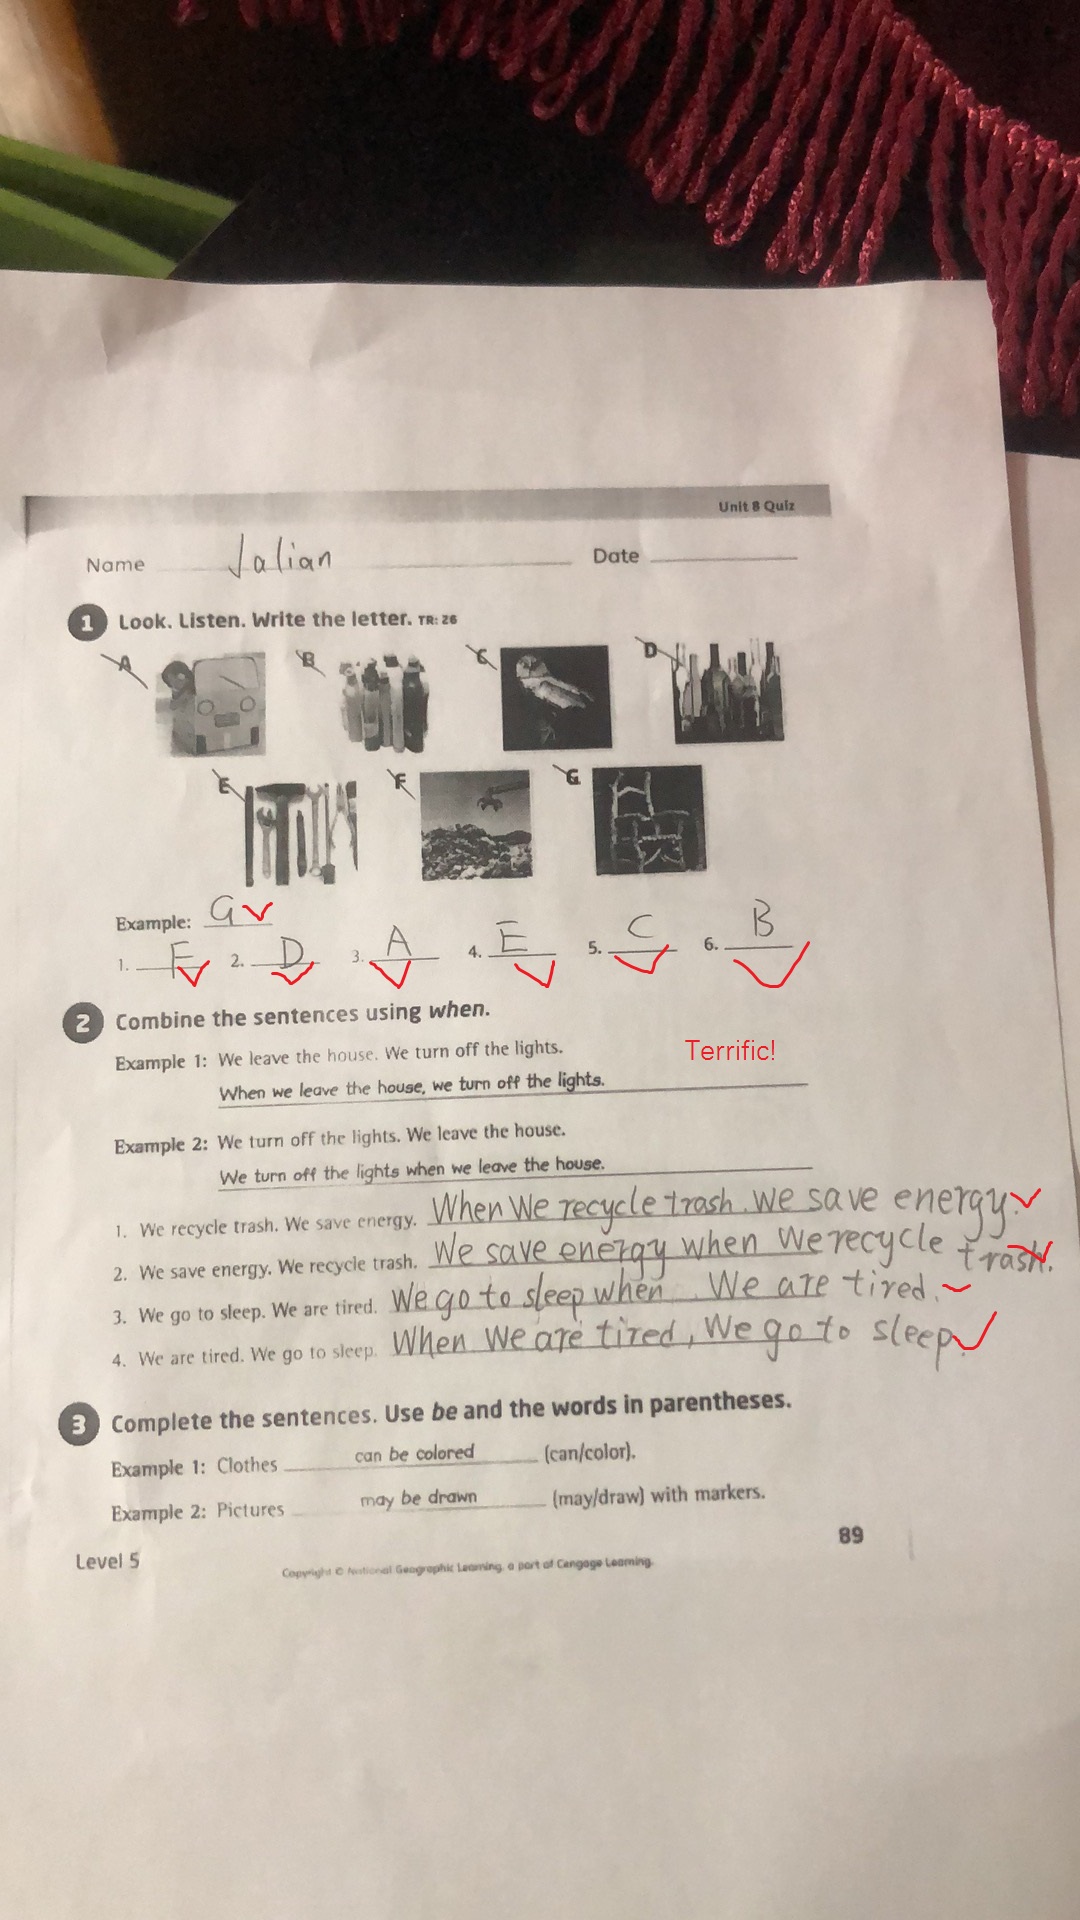 Unit 8 Quiz
Name Jalian Date
1 Look. Listen. Write the letter. TR: 26
A B C D
E F G
Example: G
1. F 2. D 3. A 4. E 5. C 6. B
2 Combine the sentences using when.
Example 1: We leave the house. We turn off the lights.
Terrific!
When we leave the house, we turn off the lights.
Example 2: We turn off the lights. We leave the house.
We turn off the lights when we leave the house.
1. We recycle trash. We save energy. When We recycle trash. We save energy.
2. We save energy. We recycle trash. We save energy when We recycle trash.
3. We go to sleep. We are tired. We go to sleep when We are tired.
4. We are tired. We go to sleep. When We are tired, We go to sleep.
3 Complete the sentences. Use be and the words in parentheses.
Example 1: Clothes can be colored (can/color).
Example 2: Pictures may be drawn (may/draw) with markers.
89
Level 5
Copyright © National Geographic Learning, a part of Cengage Learning.